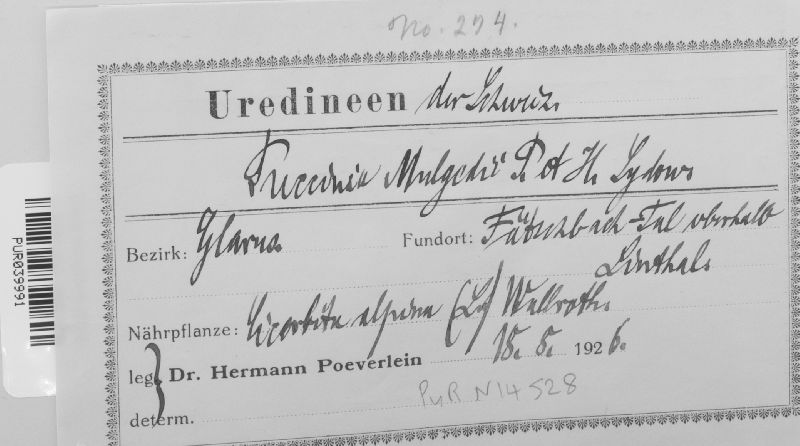 No. 274.
Uredineen der Schweiz.
Puccinia Mulgedii P. et H. Sydow.
Bezirk: Glarus. Fundort: Fätschbach-Tal oberhalb
Linthal.
Nährpflanze: Cicerbita alpina (L.) Wallroth.
15. 8. 1926.
leg. } Dr. Hermann Poeverlein
determ.
PUR N14528
PUR039991